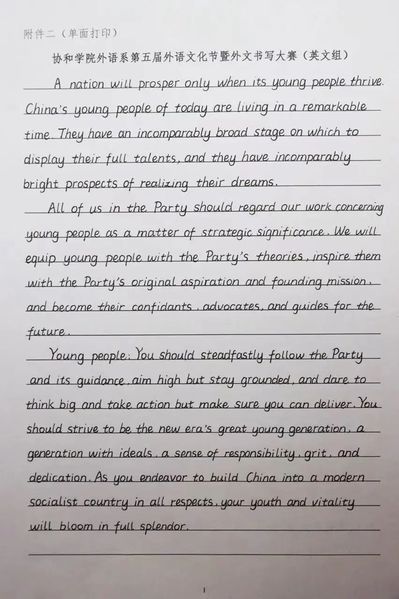 附件二（单面打印）
协和学院外语系第五届外语文化节暨外文书写大赛（英文组）
A nation will prosper only when its young people thrive.
China's young people of today are living in a remarkable
time. They have an incomparably broad stage on which to
display their full talents, and they have incomparably
bright prospects of realizing their dreams.
All of us in the Party should regard our work concerning
young people as a matter of strategic significance. We will
equip young people with the Party's theories, inspire them
with the Party's original aspiration and founding mission,
and become their confidants, advocates, and guides for the
future.
Young people: You should steadfastly follow the Party
and its guidance, aim high but stay grounded, and dare to
think big and take action but make sure you can deliver. You
should strive to be the new era's great young generation, a
generation with ideals, a sense of responsibility, grit, and
dedication. As you endeavor to build China into a modern
socialist country in all respects, your youth and vitality
will bloom in full splendor.
1